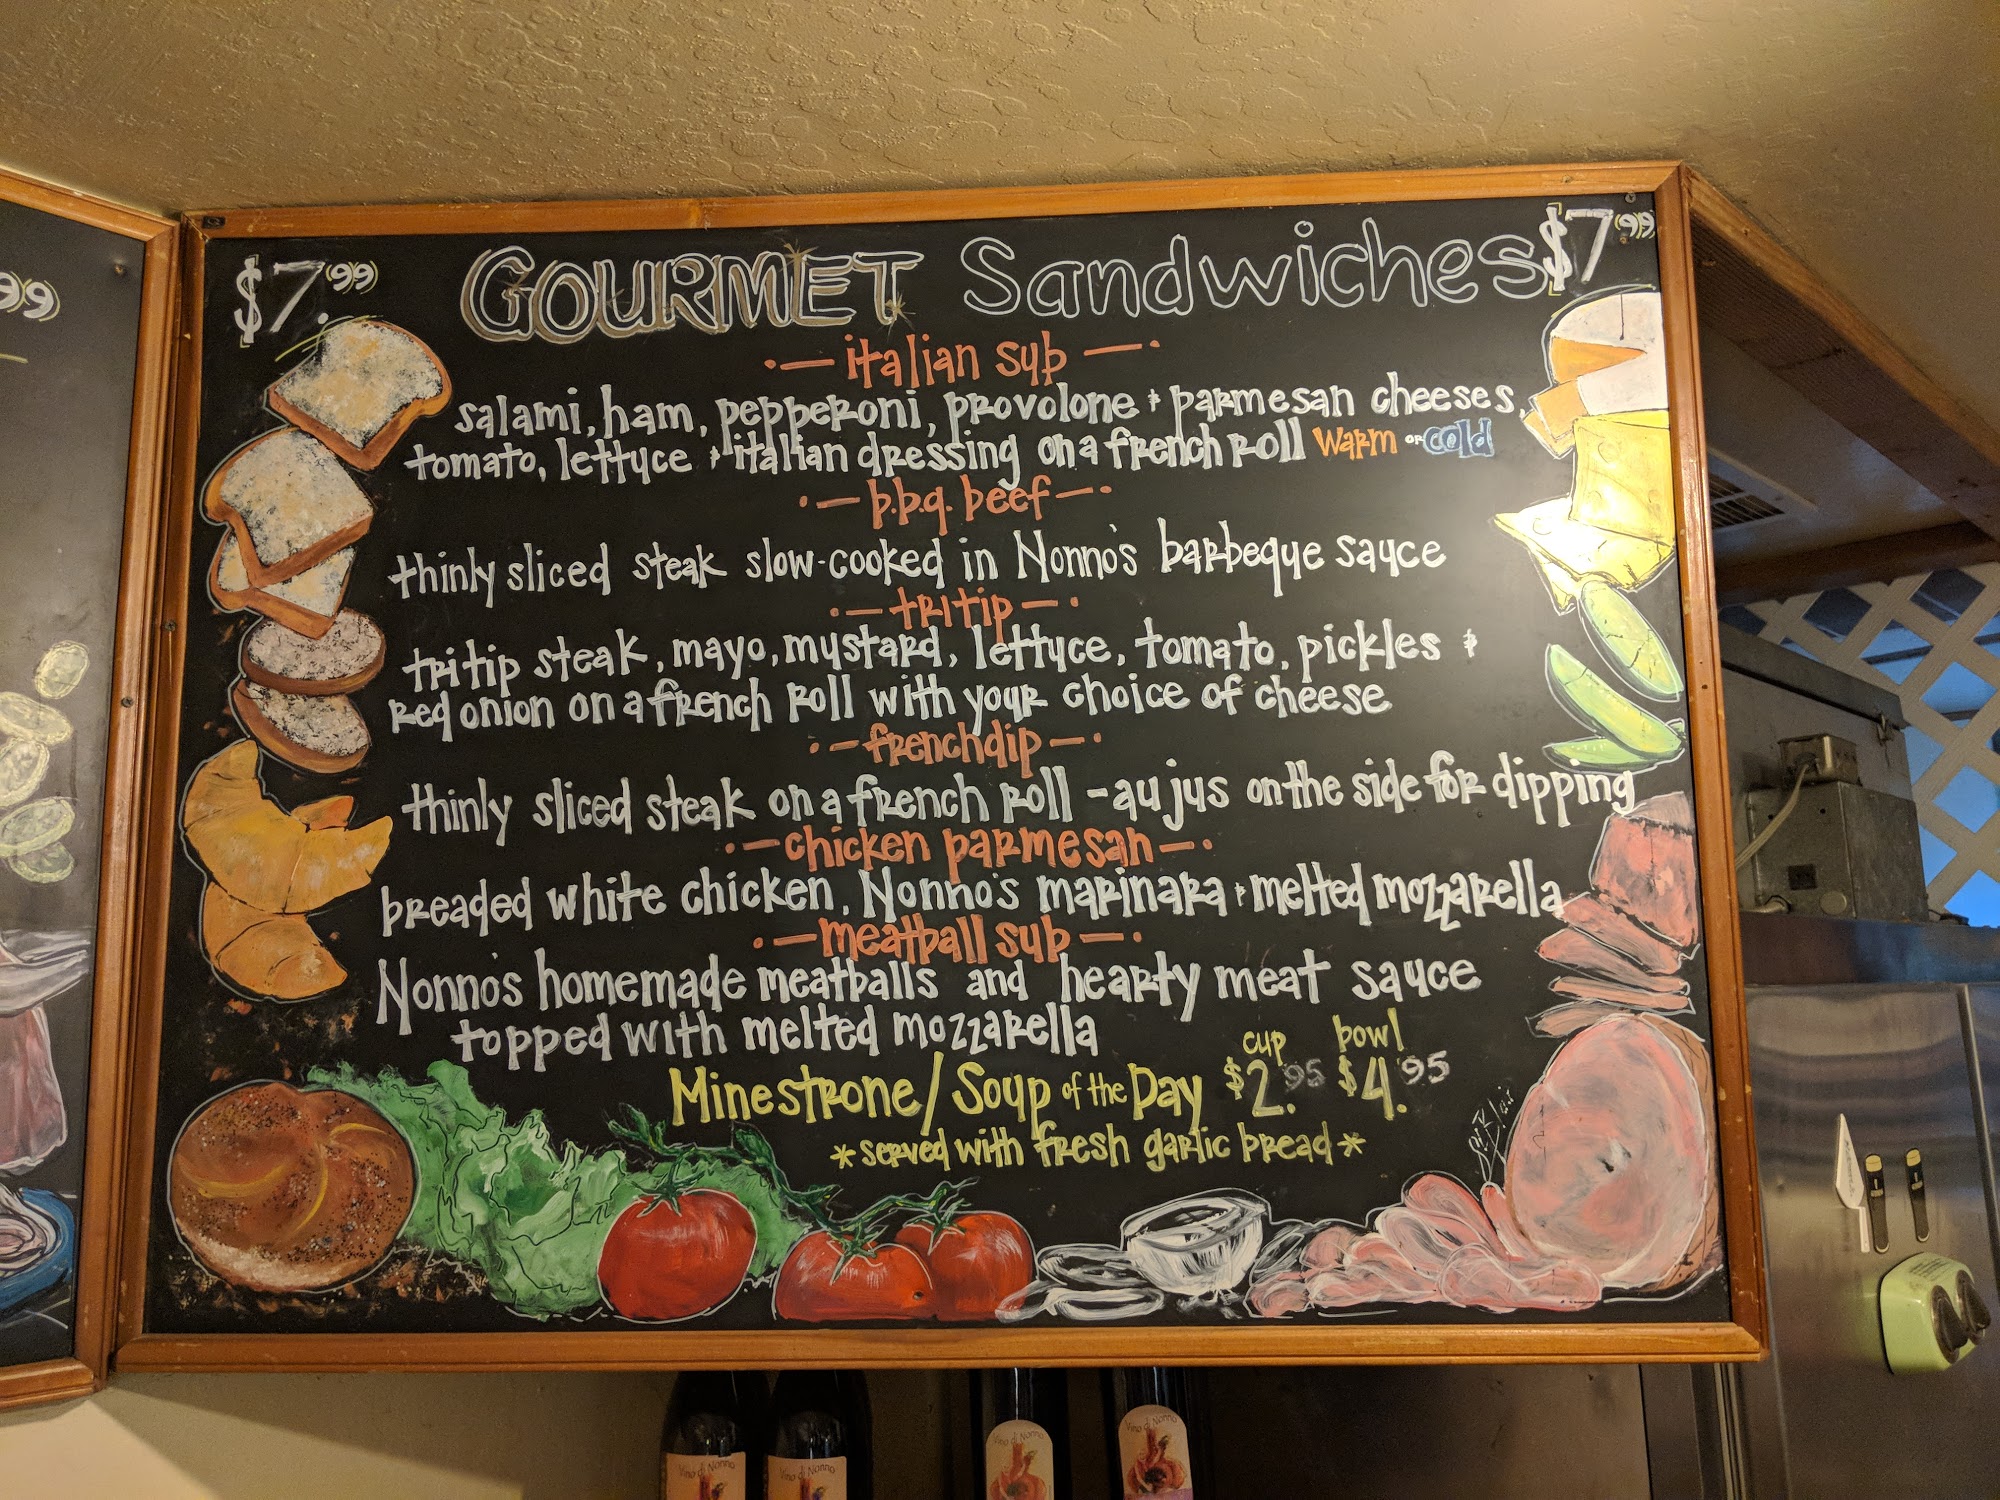 99
$7.99 GOURMET Sandwiches $7.99
italian sub
salami, ham, pepperoni, provolone & parmesan cheeses,
tomato, lettuce & italian dressing on a french roll warm or cold
b.b.q. beef
thinly sliced steak slow-cooked in Nonno's barbeque sauce
tri tip
tri tip steak, mayo, mustard, lettuce, tomato, pickles &
red onion on a french roll with your choice of cheese
french dip
thinly sliced steak on a french roll - au jus on the side for dipping
chicken parmesan
breaded white chicken, Nonno's marinara & melted mozzarella
meatball sub
Nonno's homemade meatballs and hearty meat sauce
topped with melted mozzarella
cup bowl
Minestrone/Soup of the Day $2.95 $4.95
*served with fresh garlic bread*
Vino di Nonno
Vino di Nonno
Vino di Nonno
Vino di Nonno